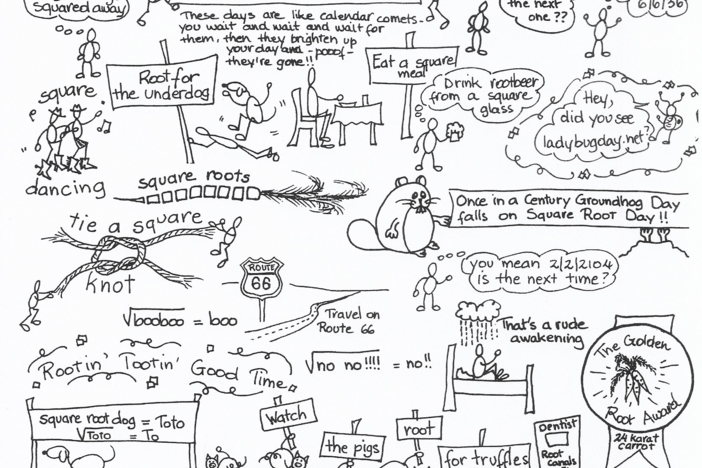 squared away
These days are like calendar comets-
you wait and wait and wait for
them, then they brighten up
your day and -poof-
they're gone!!
the next
one ??
6/6/36
Root for
the underdog
Eat a square
meal
Drink rootbeer
from a square
glass
Hey,
did you see
ladybugday.net?
square
dancing
square roots
Once in a Century Groundhog Day
falls on Square Root Day !!
tie a square
knot
you mean 2/2/2104
is the next time?
ROUTE
66
Travel on
Route 66
√booboo = boo
That's a rude
awakening
Rootin' Tootin' Good Time
√no no!!!! = no!!
The Golden
Root Award
24 karat
carrot
square root dog = Toto
√Toto = To
Watch
the pigs
root
for truffles
Dentist
Root
canals